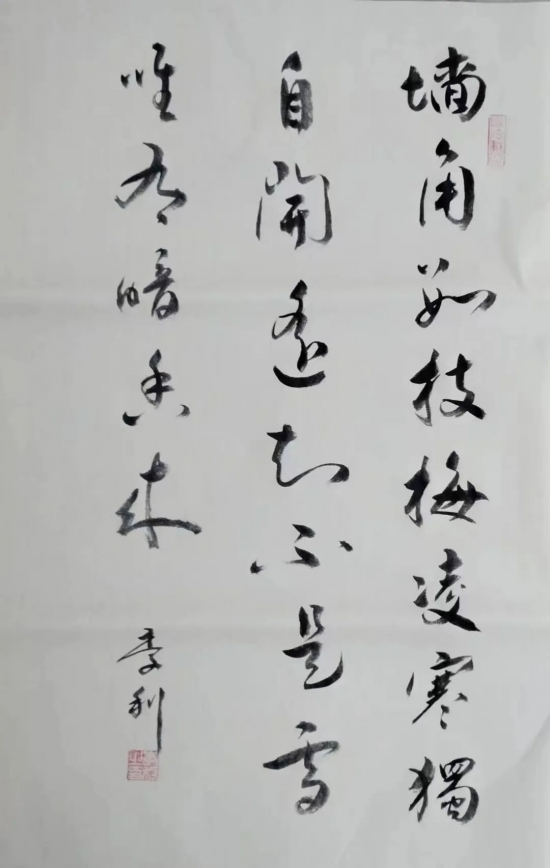 墙角數枝梅凌寒獨
自開遥知不是雪
唯有暗香来
季利